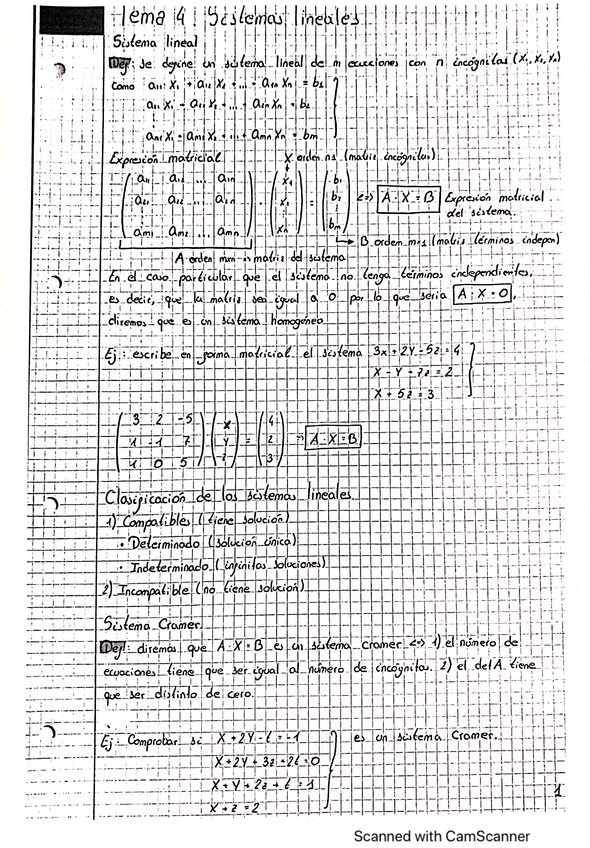 Tema 4 Sistemas lineales
Sistema lineal
Def: se define un sistema lineal de m ecuaciones con n incógnitas (X₁, X₂, Xₙ)
como a₁₁ X₁ + a₁₂ X₂ + ... + a₁ₙ Xₙ = b₁
Expresión matricial X orden n·1 (matriz incógnitas)
a₁₁ a₁₂ ... a₁ₙ X₁ b₁
a₂₁ a₂₂ ... a₂ₙ X₂ = b₂ <=> A · X = B Expresión matricial
del sistema.
aₘ₁ aₘ₂ ... aₘₙ Xₙ bₘ
B orden m·1 (matriz términos indepen)
A orden m·n → matriz del sistema
En el caso particular que el sistema no tenga términos independientes,
es decir, que la matriz sea igual a 0 por lo que sería A · X = 0,
diremos que es un sistema homogéneo
Ej: escribe en forma matricial el sistema 3x + 2y - 5z = 4
X - Y - 7z = 2
X + 5z = 3
3 2 -5 X 4
1 -1 7 · Y = 2 => A · X = B
1 0 5 z 3
Clasificación de los sistemas lineales
1) Compatibles (tiene solución)
· Determinado (solución única)
· Indeterminado (infinitas soluciones)
2) Incompatible (no tiene solución)
Sistema Cramer.
Def: diremos que A · X = B es un sistema cramer <=> 1) el número de
ecuaciones tiene que ser igual al número de incógnitas. 2) el det A tiene
que ser distinto de cero.
Ej: Comprobar si X + 2Y - t = -1 es un sistema Cramer.
X + 2Y + 3z + 2t = 0
X + Y + 2z + t = 1
X + z = 2
1
Scanned with CamScanner